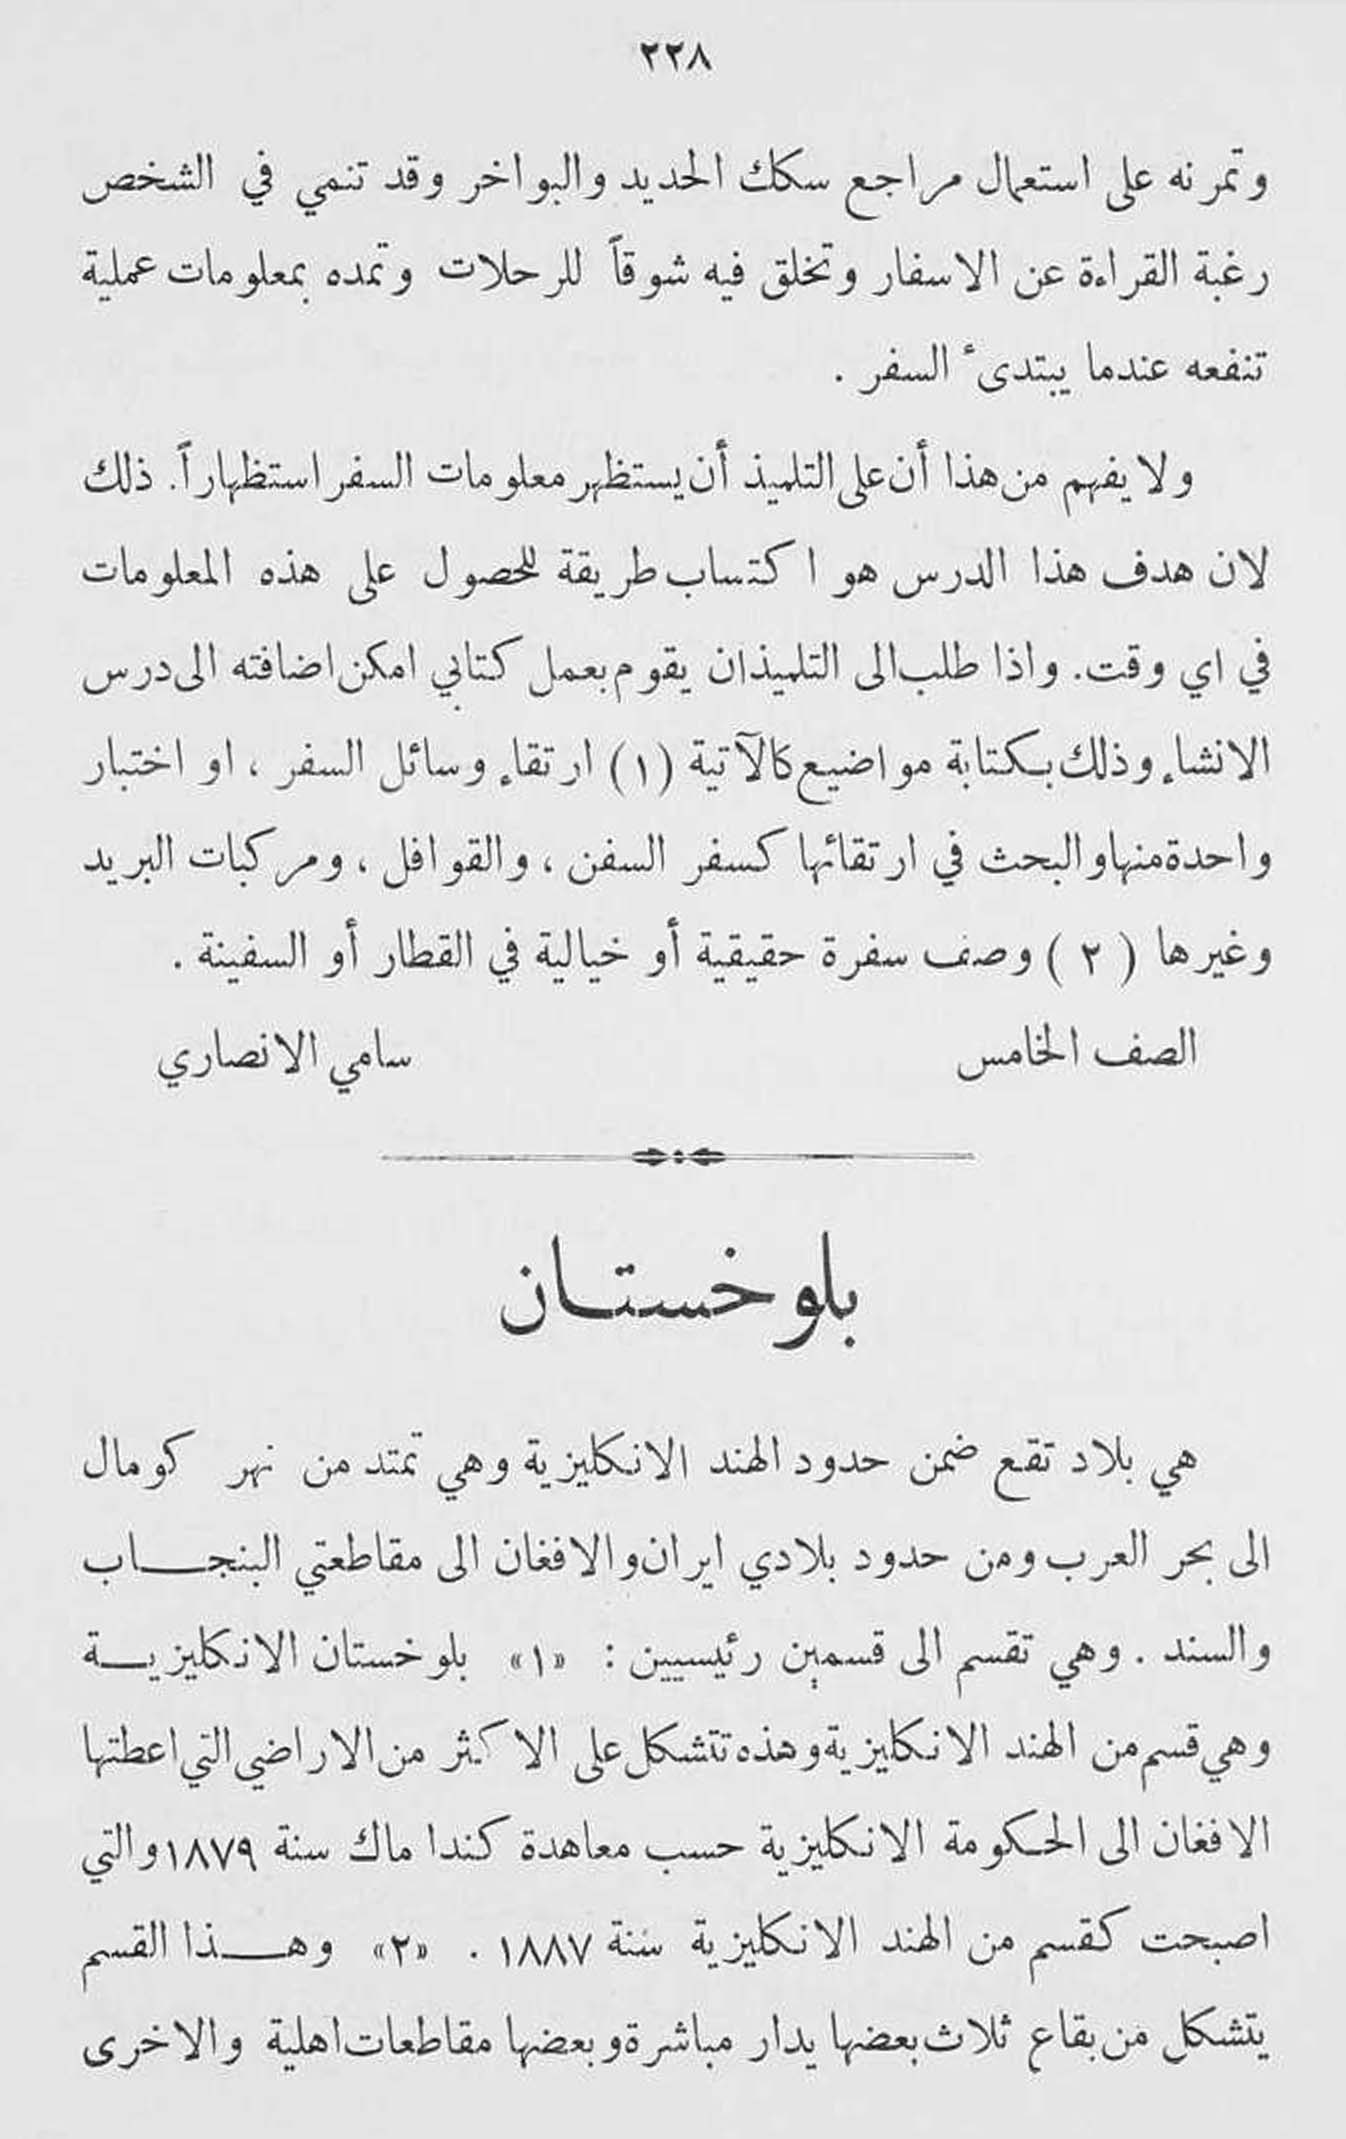 ٢٢٨
وتمرنه على استعمال مراجع سكك الحديد والبواخر وقد تنمي في الشخص
رغبة القراءة عن الاسفار وتخلق فيه شوقاً للرحلات وتمده بمعلومات عملية
تنفعه عندما يبتدىء السفر .
ولا يفهم من هذا أن على التلميذ أن يستظهر معلومات السفر استظهاراً. ذلك
لان هدف هذا الدرس هو اكتساب طريقة للحصول على هذه المعلومات
في اي وقت. واذا طلب الى التلميذ ان يقوم بعمل كتابي امكن اضافته الى درس
الانشاء وذلك بكتابة مواضيع كالآتية (١) ارتقاء وسائل السفر ، او اختبار
واحدة منها والبحث في ارتقائها كسفر السفن ، والقوافل ، ومركبات البريد
وغيرها ( ٢ ) وصف سفرة حقيقية أو خيالية في القطار أو السفينة .
الصف الخامس سامي الانصاري
بلوخستان
هي بلاد تقع ضمن حدود الهند الانكليزية وهي تمتد من نهر كومال
الى بحر العرب ومن حدود بلادي ايران والافغان الى مقاطعتي البنجاب
والسند . وهي تقسم الى قسمين رئيسيين : «١» بلوخستان الانكليزية
وهي قسم من الهند الانكليزية وهذه تتشكل على الاكثر من الاراضي التي اعطتها
الافغان الى الحكومة الانكليزية حسب معاهدة كندا ماك سنة ١٨٧٩ والتي
اصبحت كقسم من الهند الانكليزية سنة ١٨٨٧ . «٢» وهذا القسم
يتشكل من بقاع ثلاث بعضها يدار مباشرة وبعضها مقاطعات اهلية والاخرى